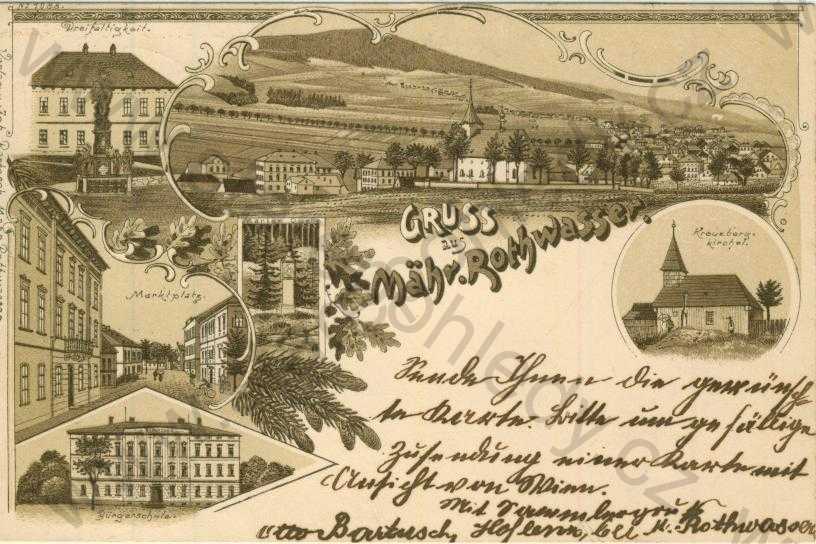 Dreifaltigkeit.
GRUSS
aus
Mähr. Rothwasser.
Kreuzberg-
kirchel.
Marktplatz.
Bürgerschule.
Sende Ihnen die gewünsch
te Karte. Bitte um gefällige
Zusendung einer Karte mit
Ansicht von Wien.
Mit Sammlergruß
Otto Bartusch, bei M. Rothwasser